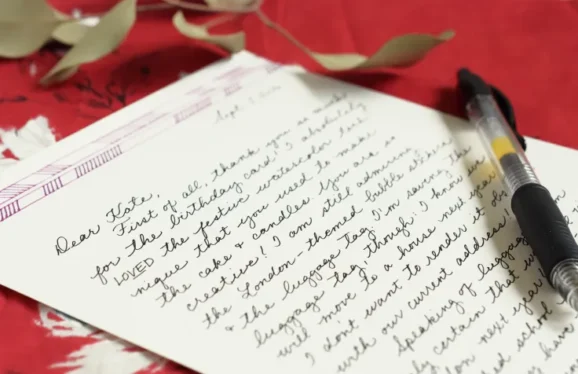 Sept.
Dear Kate,
First of all, thank you so much
for the birthday card! I absolutely
LOVED the festive watercolor tech
nique that you used to make
the cake & candles. You are so
creative! I am still admiring
the London-themed bubble stickers
& the luggage tag. I'm saving the
luggage tag, though. I know we
will move to a house next year
I don't want to render it obs
with our current address!
Speaking of luggage
certain that w
next year
school
have